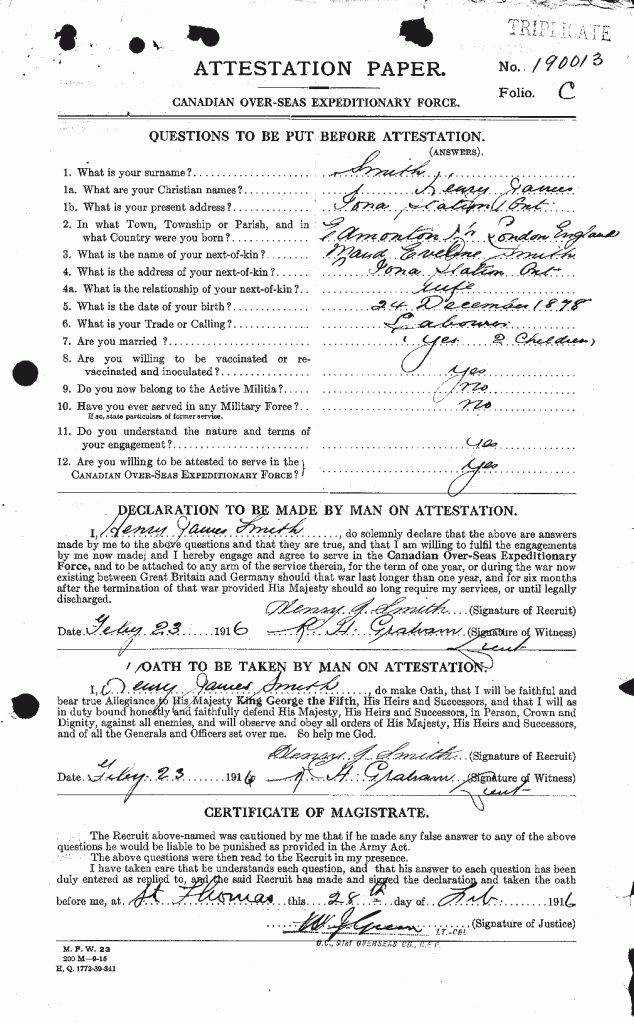 TRIPLICATE
ATTESTATION PAPER.
No. 190013
Folio. C
CANADIAN OVER-SEAS EXPEDITIONARY FORCE.
QUESTIONS TO BE PUT BEFORE ATTESTATION.
(ANSWERS).
1. What is your surname?.......... Smith
1a. What are your Christian names?.......... Henry James
1b. What is your present address?.......... Iona Station Ont
2. In what Town, Township or Parish, and in
what Country were you born?.......... Edmonton Nr London England
3. What is the name of your next-of-kin?.......... Maud Eveline Smith
4. What is the address of your next-of-kin?.......... Iona Station Ont
4a. What is the relationship of your next-of-kin?.......... wife
5. What is the date of your birth?.......... 24 December 1878
6. What is your Trade or Calling?.......... Labourer
7. Are you married ?.......... yes 2 Children
8. Are you willing to be vaccinated or re-
vaccinated and inoculated?.......... yes
9. Do you now belong to the Active Militia?.......... no
10. Have you ever served in any Military Force?.. no
If so, state particulars of former service.
11. Do you understand the nature and terms of
your engagement?.......... yes
12. Are you willing to be attested to serve in the
CANADIAN OVER-SEAS EXPEDITIONARY FORCE? yes
DECLARATION TO BE MADE BY MAN ON ATTESTATION.
I, Henry James Smith, do solemnly declare that the above are answers
made by me to the above questions and that they are true, and that I am willing to fulfil the engagements
by me now made, and I hereby engage and agree to serve in the Canadian Over-Seas Expeditionary
Force, and to be attached to any arm of the service therein, for the term of one year, or during the war now
existing between Great Britain and Germany should that war last longer than one year, and for six months
after the termination of that war provided His Majesty should so long require my services, or until legally
discharged.
Henry J. Smith (Signature of Recruit)
Date Feby 23 1916 R. H. Graham (Signature of Witness)
Lieut
OATH TO BE TAKEN BY MAN ON ATTESTATION.
I, Henry James Smith, do make Oath, that I will be faithful and
bear true Allegiance to His Majesty King George the Fifth, His Heirs and Successors, and that I will as
in duty bound honestly and faithfully defend His Majesty, His Heirs and Successors, in Person, Crown and
Dignity, against all enemies, and will observe and obey all orders of His Majesty, His Heirs and Successors,
and of all the Generals and Officers set over me. So help me God.
Henry J. Smith (Signature of Recruit)
Date Feby 23 1916 R. H. Graham (Signature of Witness)
Lieut
CERTIFICATE OF MAGISTRATE.
The Recruit above-named was cautioned by me that if he made any false answer to any of the above
questions he would be liable to be punished as provided in the Army Act.
The above questions were then read to the Recruit in my presence.
I have taken care that he understands each question, and that his answer to each question has been
duly entered as replied to, and the said Recruit has made and signed the declaration and taken the oath
before me, at St Thomas this 28th day of Feb 1916
W J Green (Signature of Justice)
LT.-COL.
O.C., 91ST OVERSEAS CO., C.E.F.
M. F. W. 23
200 M—9-15
H. Q. 1772-39-841